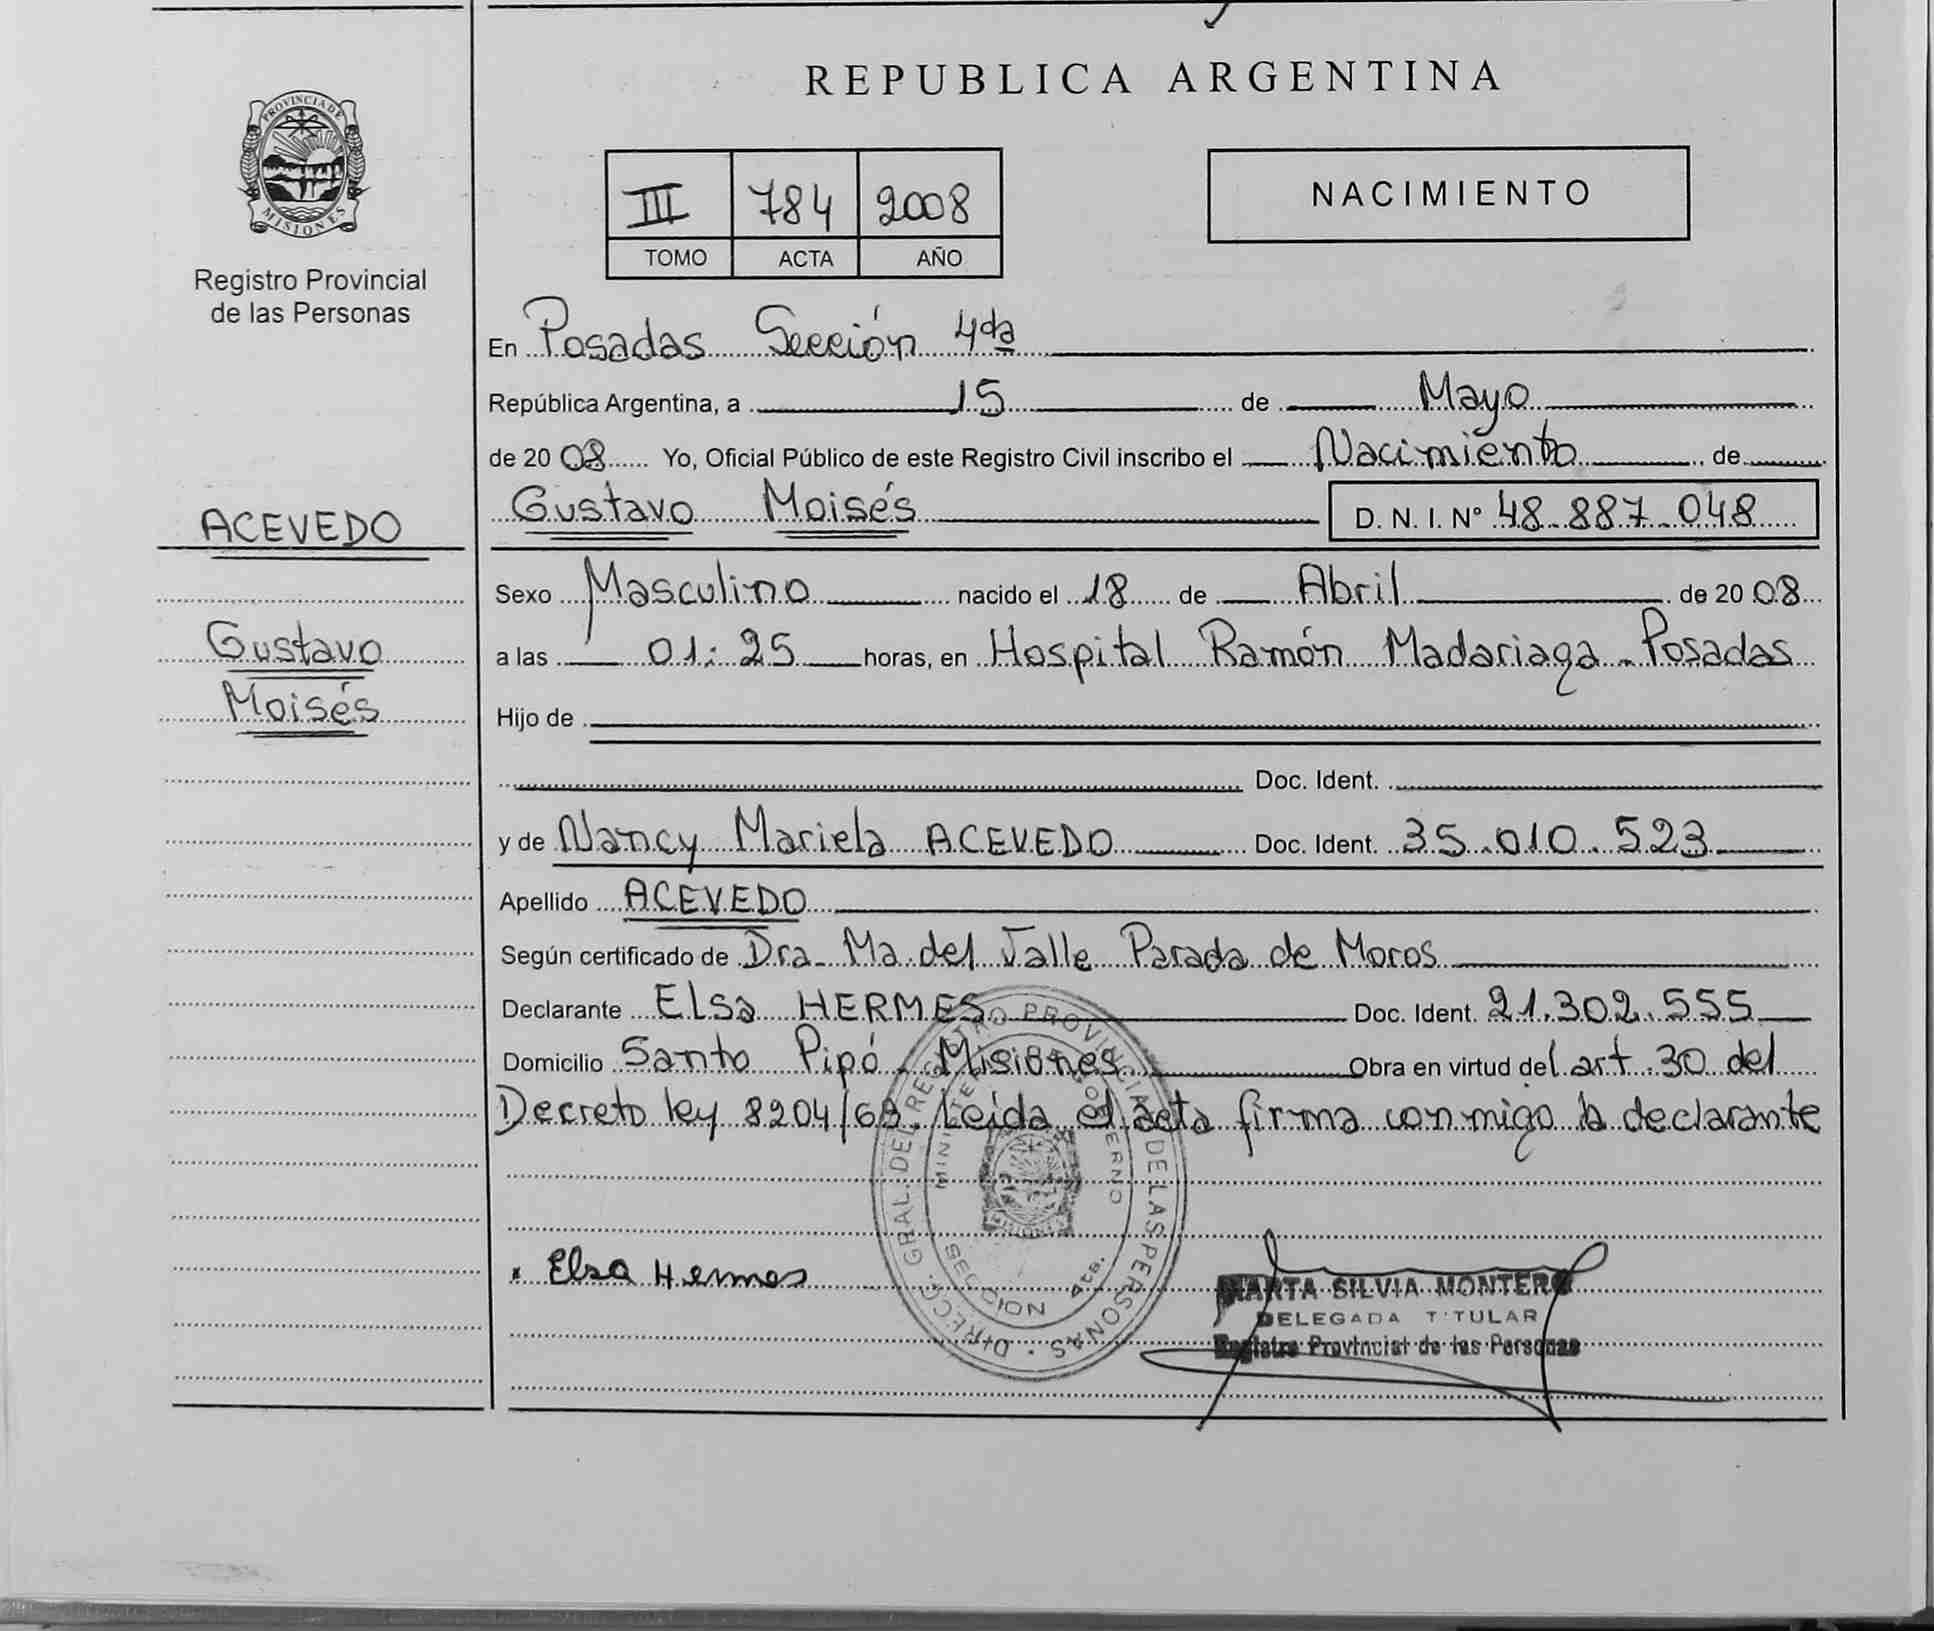 REPUBLICA ARGENTINA
PROVINCIA DE
MISIONES
Registro Provincial
de las Personas
III 784 2008
TOMO ACTA AÑO
NACIMIENTO
En Posadas Sección 4da
República Argentina, a 15 de Mayo
de 2008 Yo, Oficial Público de este Registro Civil inscribo el Nacimiento de
Gustavo Moisés D. N. I. Nº 48.887.048
ACEVEDO
Gustavo
Moisés
Sexo Masculino nacido el 18 de Abril de 2008
a las 01:25 horas, en Hospital Ramón Madariaga - Posadas
Hijo de
Doc. Ident.
y de Nancy Mariela ACEVEDO Doc. Ident. 35.010.523
Apellido ACEVEDO
Según certificado de Dra. Ma. del Valle Parada de Moros
Declarante Elsa HERMES Doc. Ident. 21.302.555
Domicilio Santo Pipó - Misiones Obra en virtud del art. 30 del
Decreto ley 8204/63. Leída el acta firma conmigo la declarante
DIRECC. GRAL. DEL REGISTRO PROVINCIAL DE LAS PERSONAS
Elsa Hermes
MARTA SILVIA MONTERO
DELEGADA TITULAR
Registro Provincial de las Personas